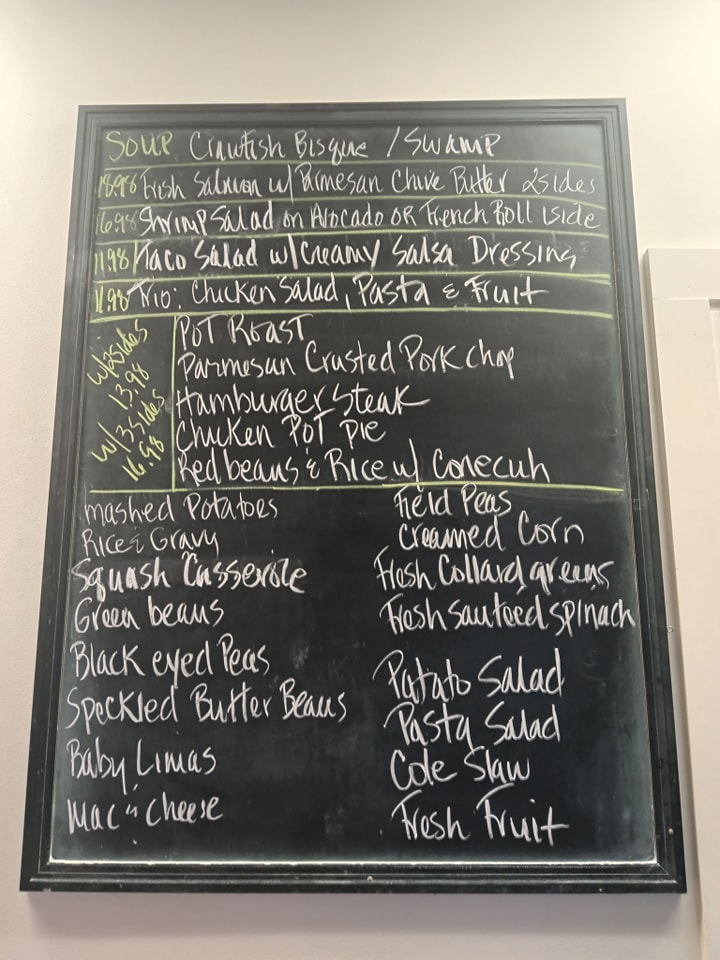 SOUP Crawfish Bisque / Swamp
18.98 Fresh Salmon w/ Parmesan Chive Butter 2 sides
16.98 Shrimp Salad on Avocado OR French Roll 1side
11.98 Taco Salad w/ Creamy Salsa Dressing
11.98 Trio: Chicken Salad, Pasta & Fruit
w/2sides 13.98
w/3sides 16.98
Pot Roast
Parmesan Crusted Pork chop
Hamburger Steak
Chicken Pot Pie
Red beans & Rice w/ Conecuh
mashed Potatoes
Rice & Gravy
Squash Casserole
Green beans
Black eyed Peas
Speckled Butter Beans
Baby Limas
Mac n cheese
Field Peas
Creamed Corn
Fresh Collard greens
Fresh sauteed spinach
Patato Salad
Pasta Salad
Cole Slaw
Fresh Fruit